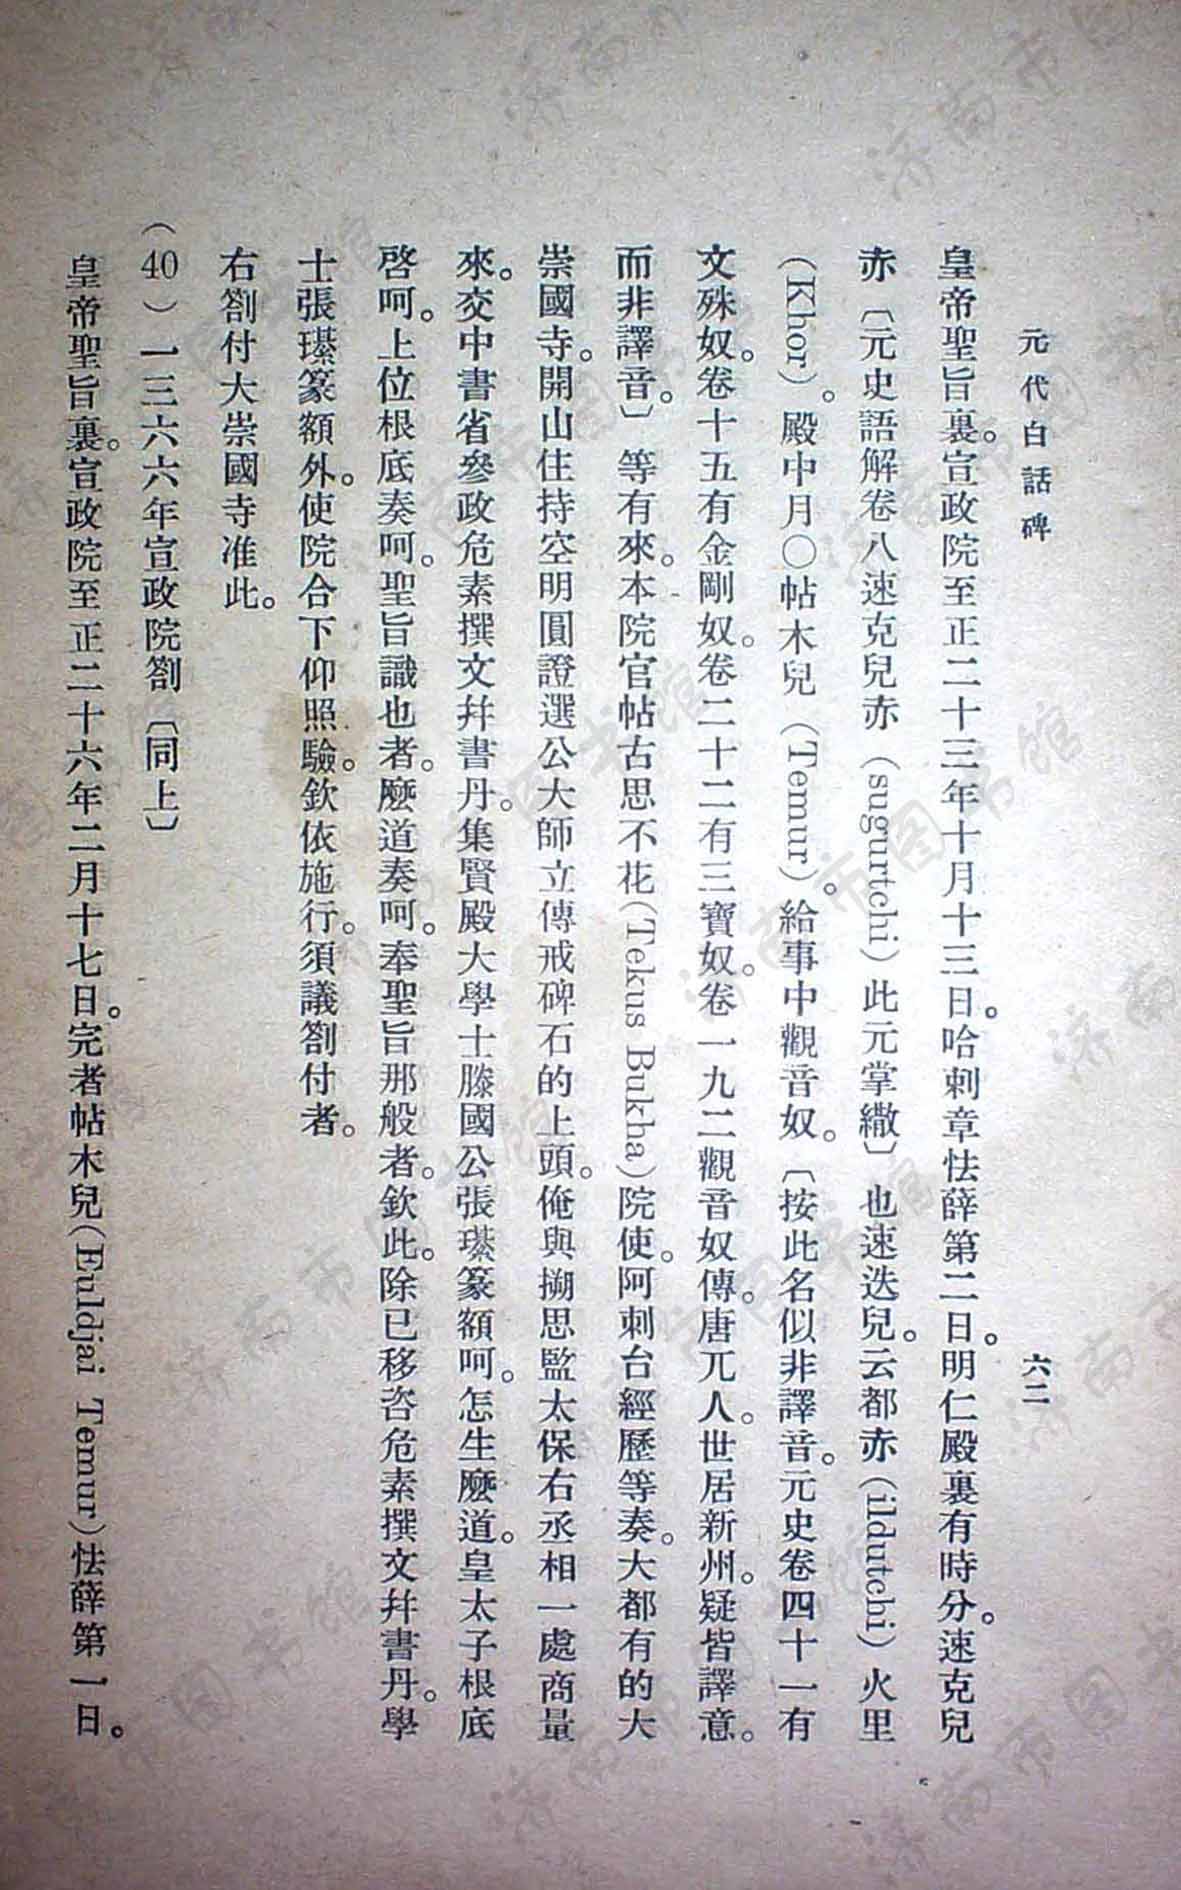 元代白話碑　六二
皇帝聖旨裏。宣政院至正二十三年十月十三日。哈剌章怯薛第二日。明仁殿裏有時分。速克兒
赤〔元史語解卷八速克兒赤（sugurtchi）此元掌繖〕也速迭兒。云都赤（ildutchi）火里
（Khor）。殿中月〇帖木兒（Temur）。給事中觀音奴。〔按此名似非譯音。元史卷四十一有
文殊奴。卷十五有金剛奴。卷二十二有三寶奴。卷一九二觀音奴傳。唐兀人。世居新州。疑皆譯意。
而非譯音。〕等有來。本院官帖古思不花（Tekus Bukha）院使。阿剌台經歷等奏。大都有的大
崇國寺。開山住持空明圓證選公大師立傳戒碑石的上頭。俺與搠思監太保右丞相一處商量
來。交中書省參政危素撰文幷書丹。集賢殿大學士滕國公張瑧篆額呵。怎生麽道。皇太子根底
啓呵。上位根底奏呵。聖旨識也者。麽道奏呵。奉聖旨那般者。欽此。除已移咨危素撰文幷書丹。學
士張瑧篆額外。使院合下仰照驗。欽依施行。須議劄付者。
右劄付大崇國寺准此。
（40）一三六六年宣政院劄〔同上〕
皇帝聖旨裏。宣政院至正二十六年二月十七日。完者帖木兒（Euldjai Temur）怯薛第一日。
济南市图书馆